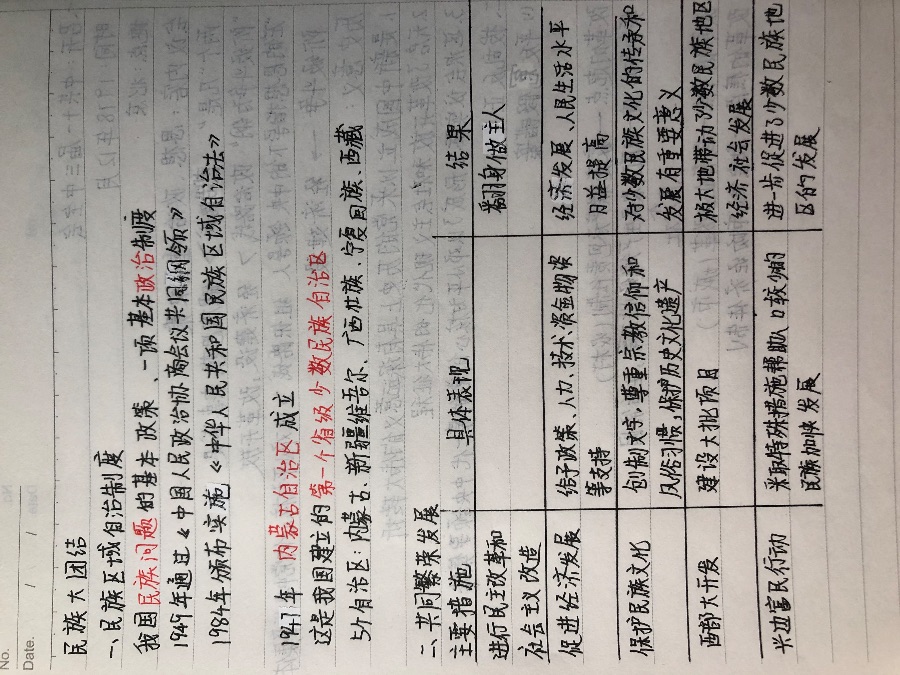 No.
Date. / /
民族大团结
一、民族区域自治制度
我国民族问题的基本政策、一项基本政治制度
1949年通过《中国人民政治协商会议共同纲领》
1984年颁布实施《中华人民共和国民族区域自治法》
1947年 内蒙古自治区成立
这是我国建立的第一个省级少数民族自治区
5个自治区:内蒙古、新疆维吾尔、广西壮族、宁夏回族、西藏
二、共同繁荣发展
主要措施 具体表现 结果
进行民主改革和 翻身做主人
社会主义改造
促进经济发展 给予政策、人力、技术资金物资 经济发展、人民生活水平
等支持 日益提高
保护民族文化 创制文字,尊重宗教信仰和 对少数民族文化的传承和
风俗习惯;保护历史文化遗产 发展有重要意义
西部大开发 建设大批项目 极大地带动了少数民族地区
经济社会发展
兴边富民行动 采取特殊措施帮助人口较少的 进一步促进了少数民族地
民族加快发展 区的发展